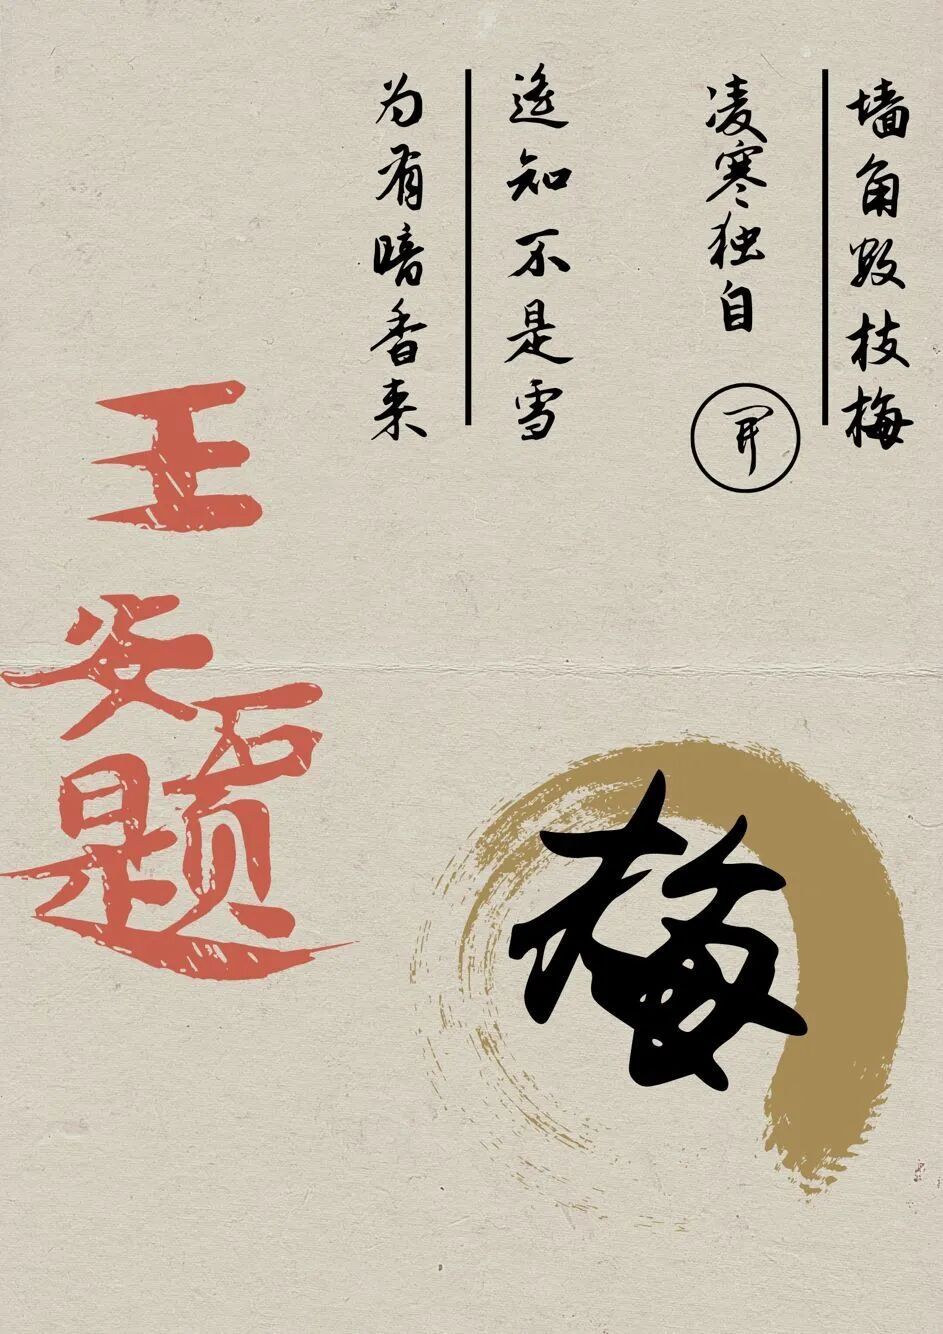 墙角数枝梅
凌寒独自开
遥知不是雪
为有暗香来
王安石题
梅